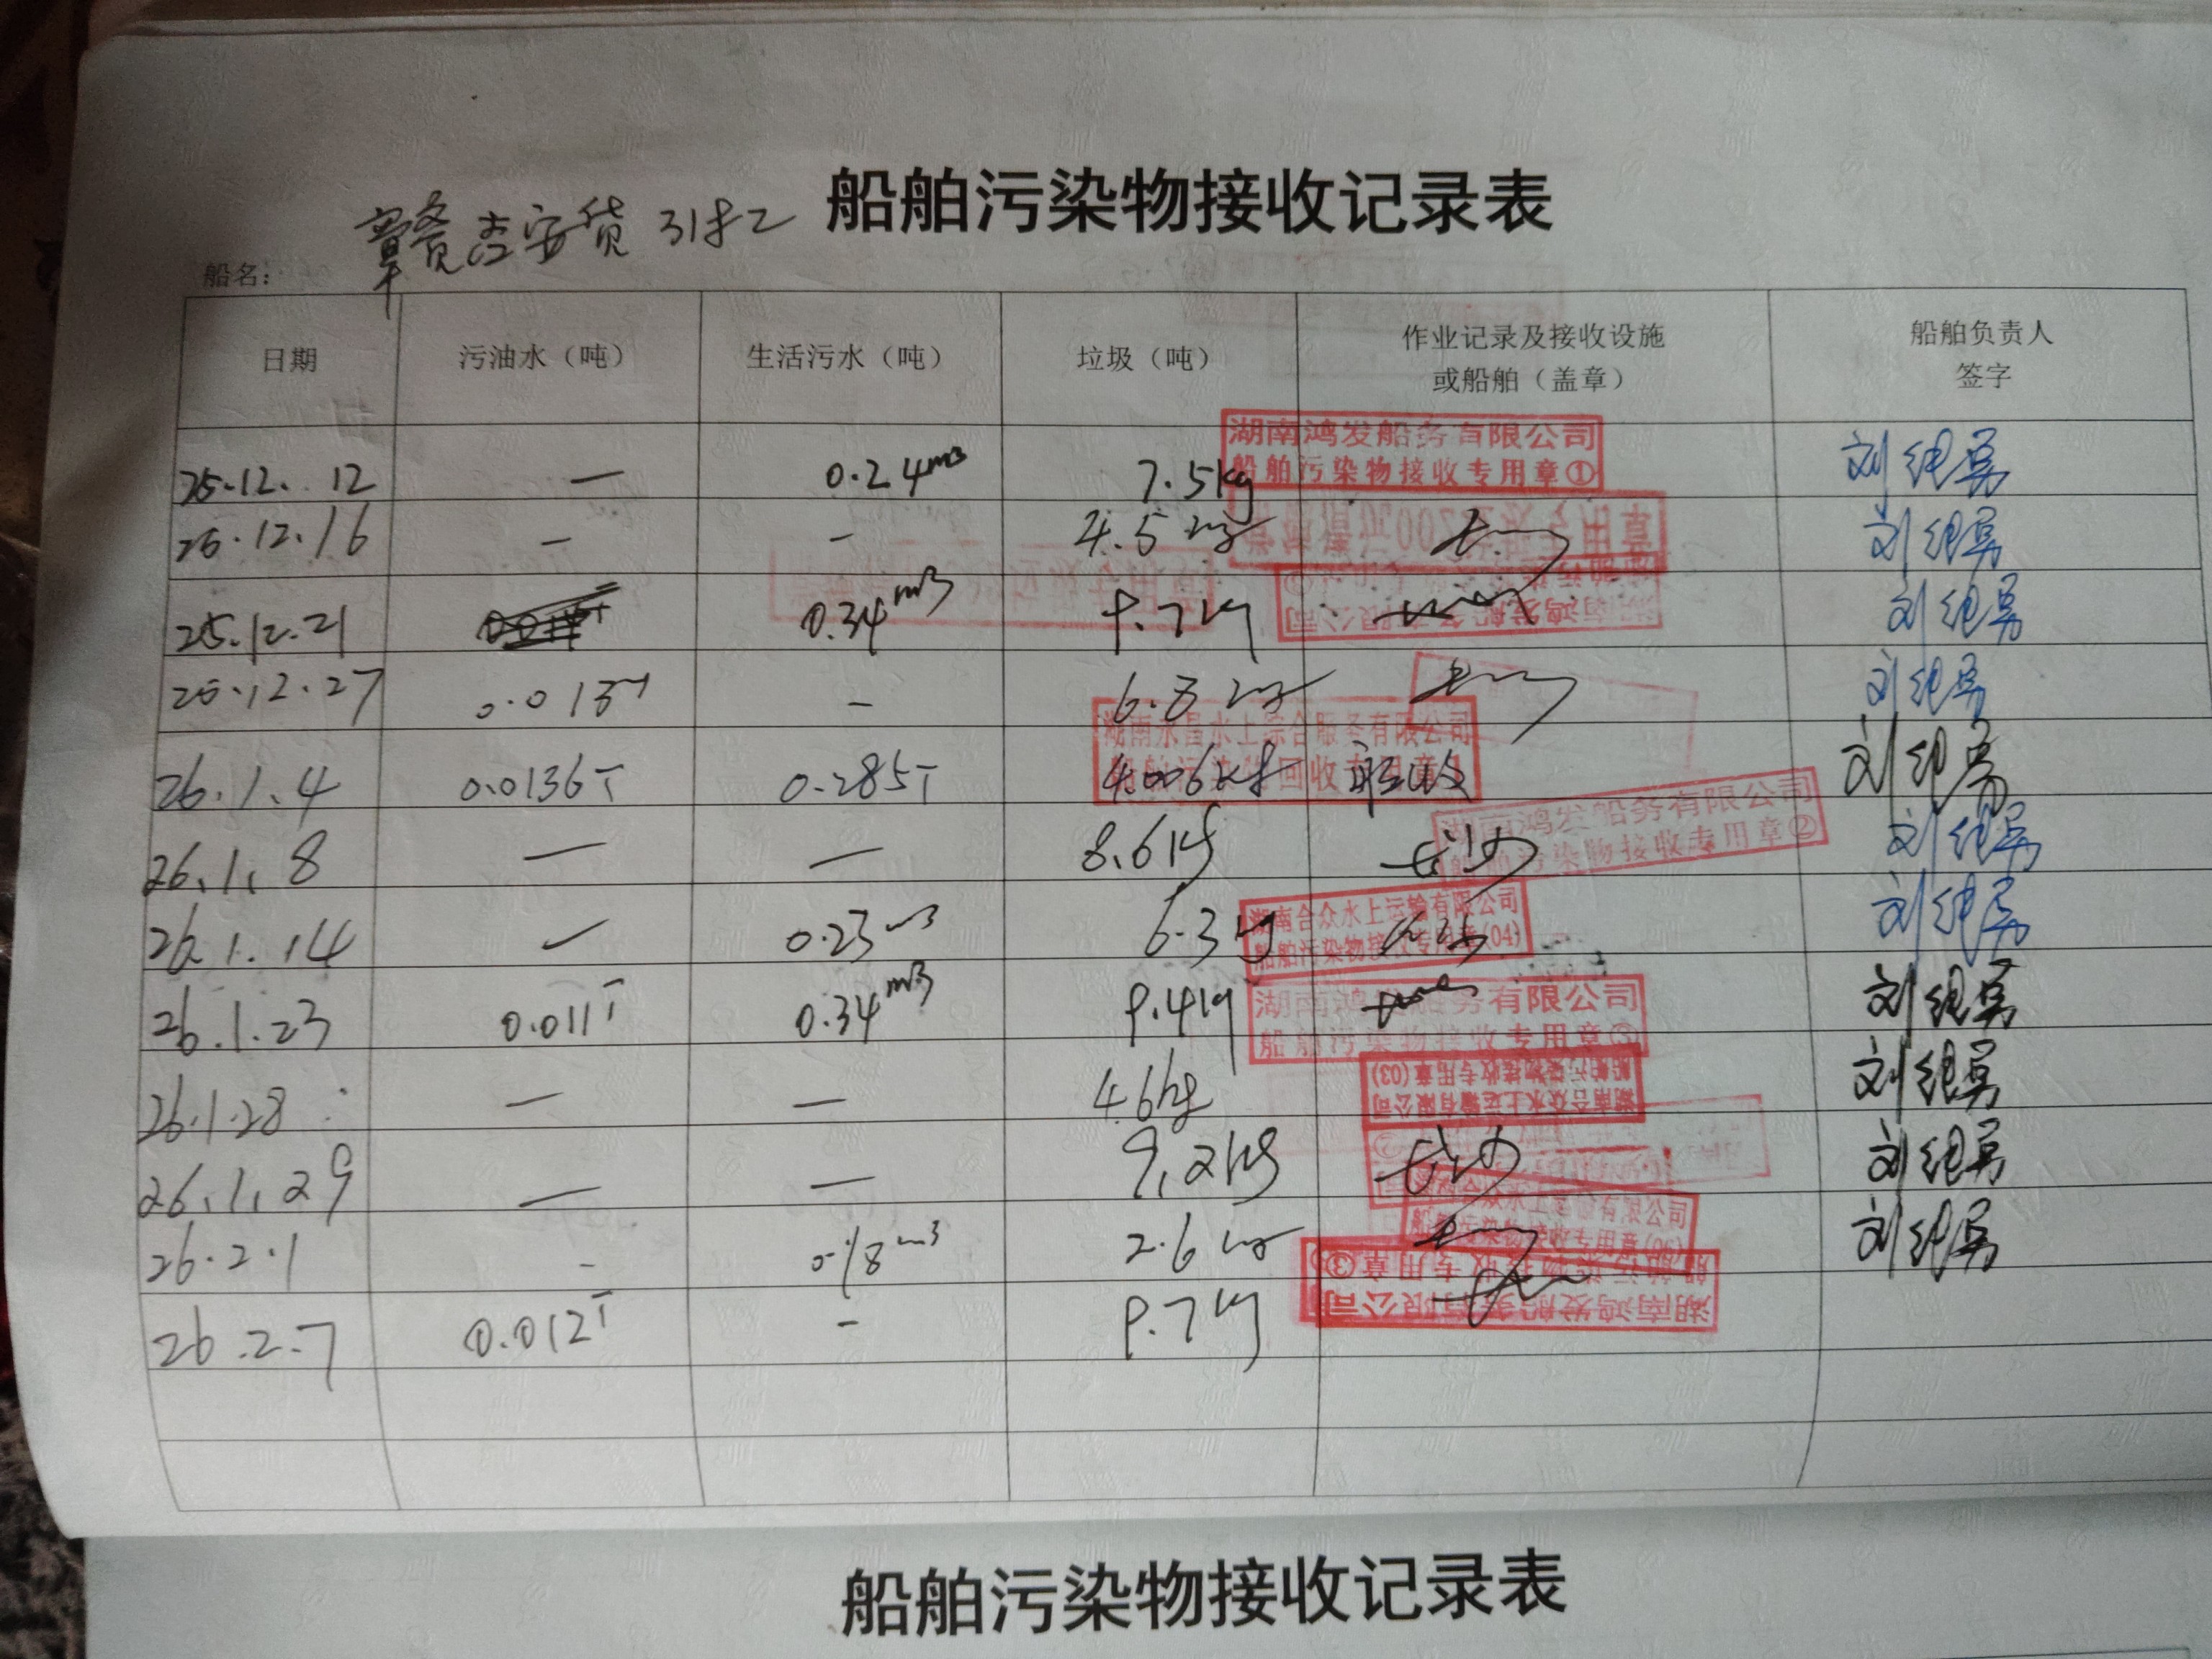 船舶污染物接收记录表
船名： 赣吉安货
日期 污油水（吨） 生活污水（吨） 垃圾（吨） 作业记录及接收设施或船舶（盖章） 船舶负责人签字
湖南鸿发船务有限公司
船舶污染物接收专用章①
25.12.12 — 0.24m3 7.5kg 刘继勇
25.12.16 - - 4.5kg 长沙 刘继勇
湖南鸿发船务有限公司
25.12.21 0.34m3 9.7kg 长沙 刘继勇
25.12.27 - 长沙 刘继勇
湖南永昌水上综合服务有限公司
26.1.4 0.0136T 0.285T 刘继勇
湖南鸿发船务有限公司
船舶污染物接收专用章②
26.1.8 — — 8.6kg 长沙 刘继勇
湖南合众水上运输有限公司
船舶污染物接收专用章(04)
26.1.14 — 0.23m3 6.3kg 长沙 刘继勇
湖南鸿发船务有限公司
船舶污染物接收专用章
26.1.23 0.011T 0.34m3 9.4kg 长沙 刘继勇
湖南合众水上运输有限公司
船舶污染物接收专用章(03)
26.1.28 — — 4.6kg 刘继勇
26.1.29 — — 9.2kg 长沙 刘继勇
船舶污染物接收专用章(06)
26.2.1 - 0.18m3 2.6kg 长沙 刘继勇
湖南鸿发船务有限公司
船舶污染物接收专用章③
26.2.7 0.012T - 9.7kg 长沙
船舶污染物接收记录表